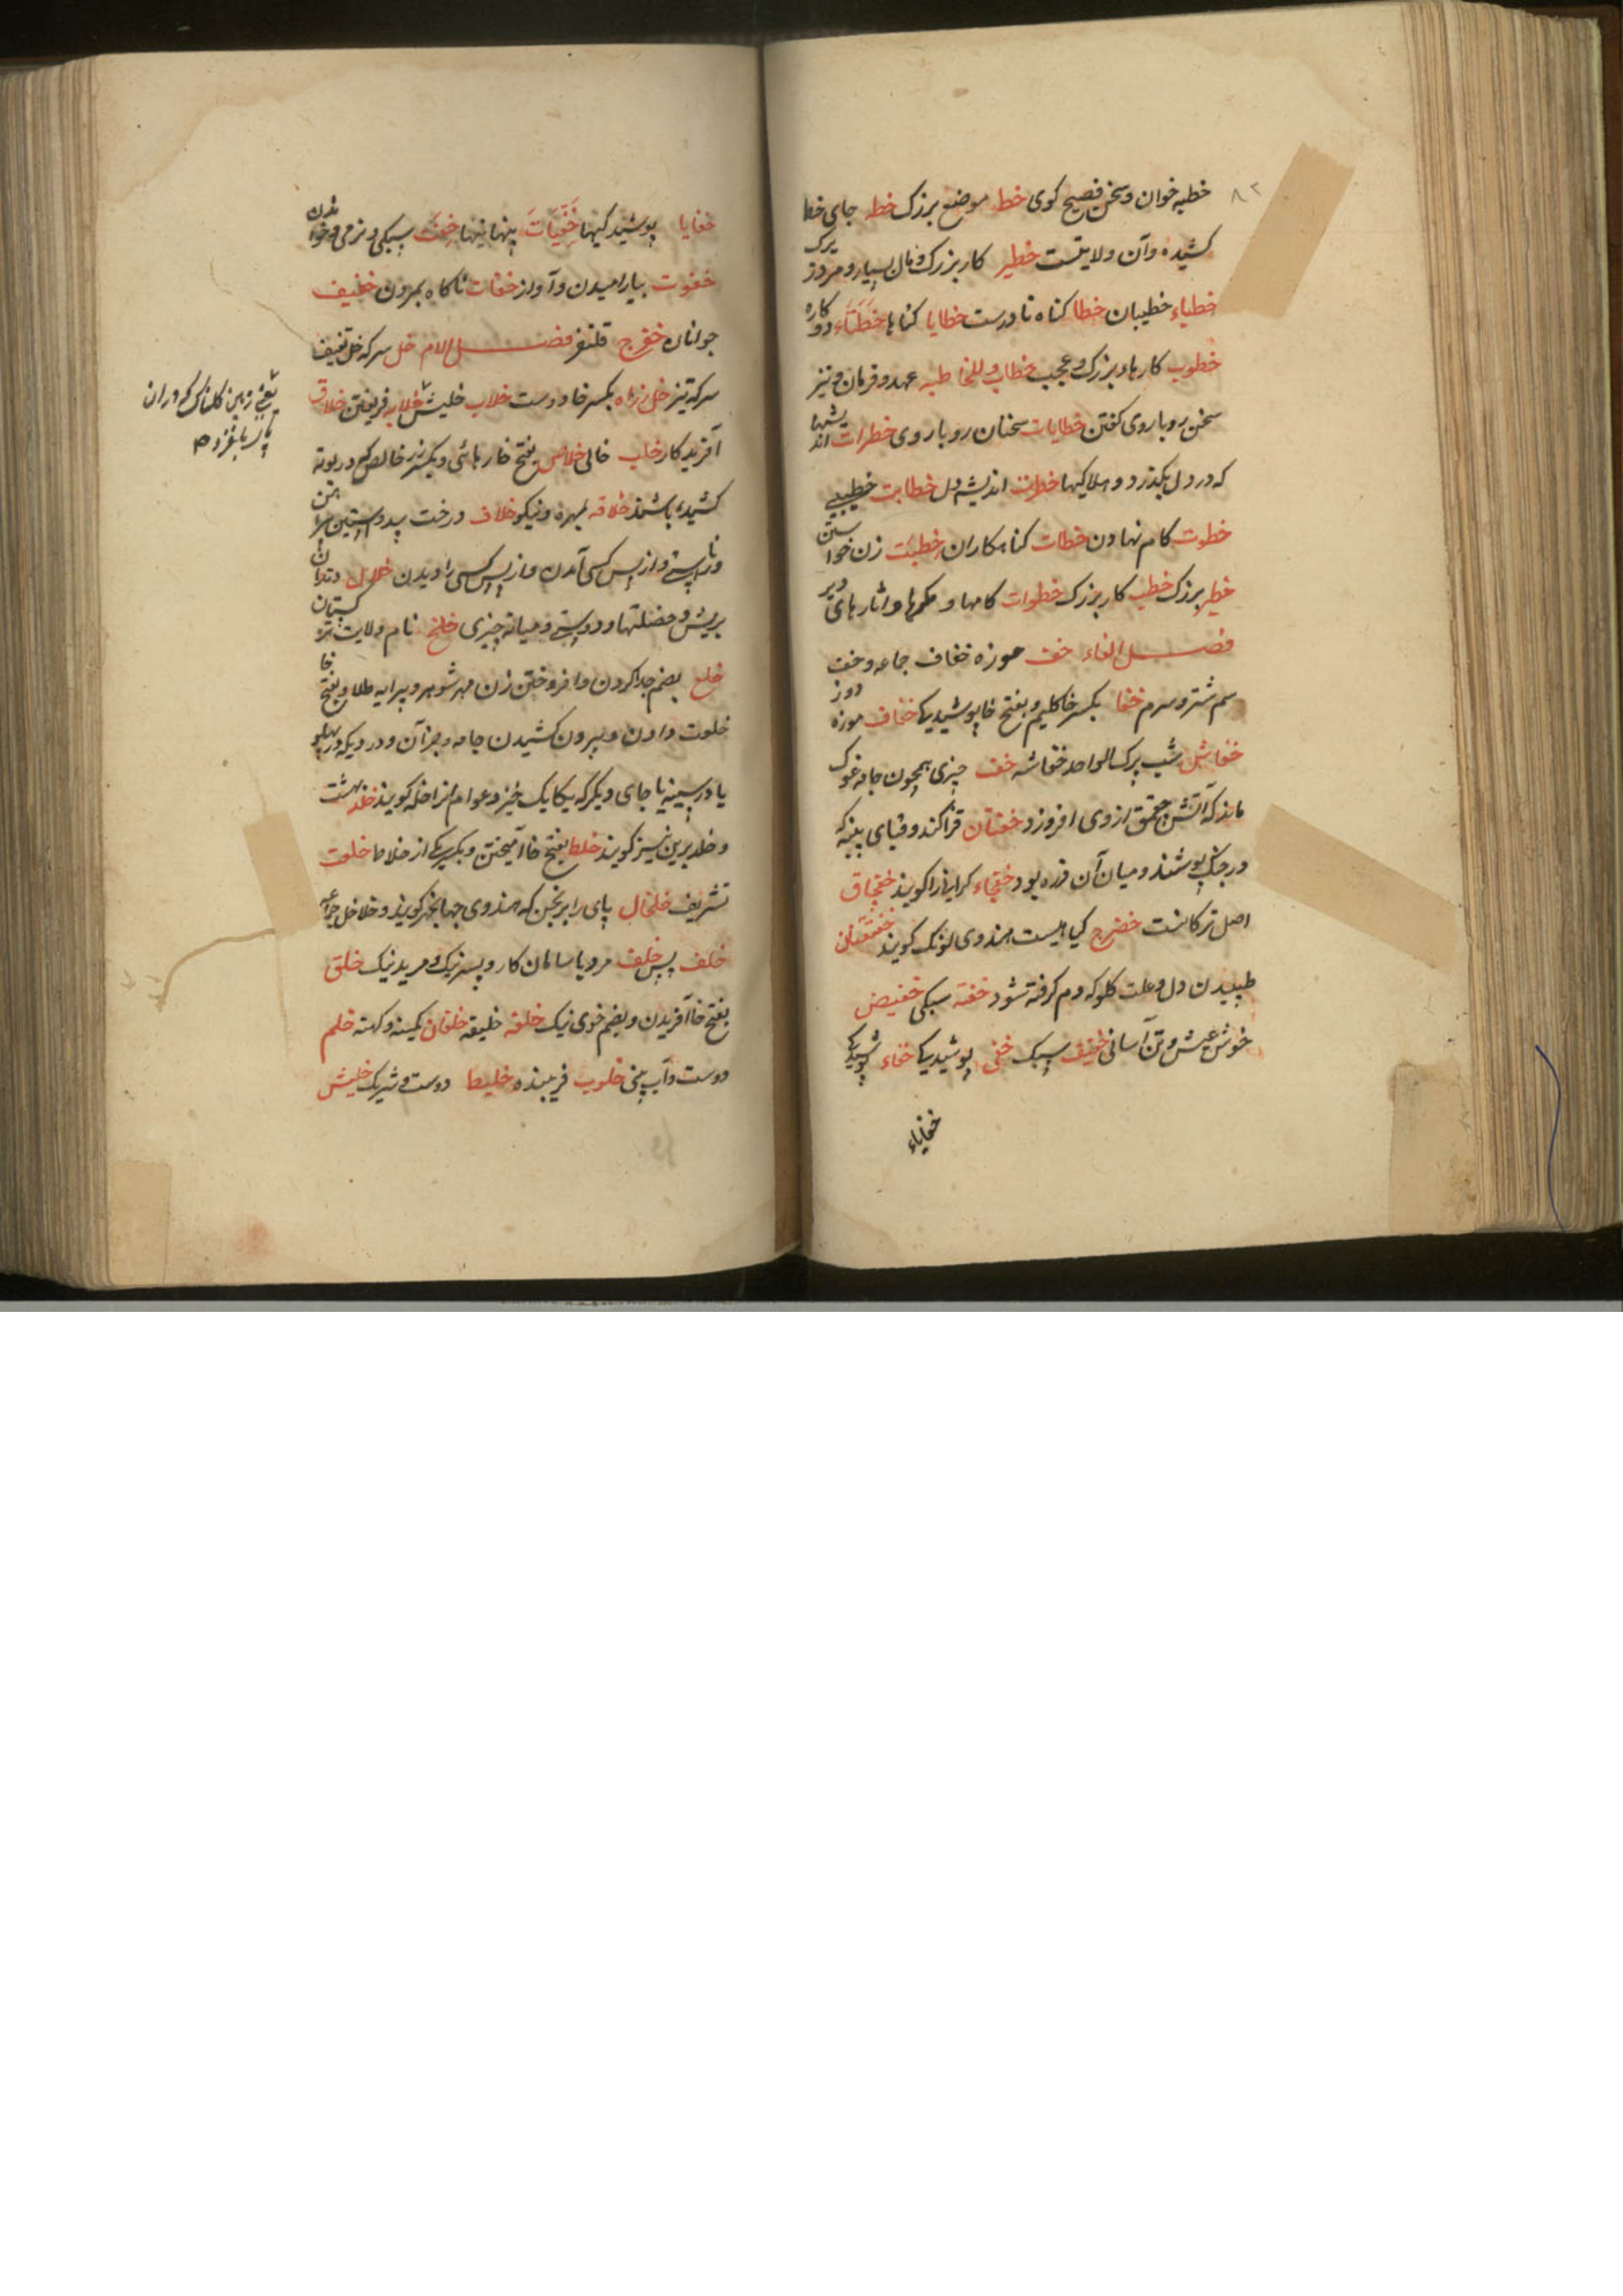 ۸۲
خطبه خوان و سخن فصیح کوی خط موضع بزرک خطه جای خط
کشیده وآن ولایتست خطیر کار بزرک و مال بسیار و مرد بزرک
خطباء خطیبان خطا کناه نادرست خطایا کناها
خطوب کارهاء بزرک و عجب خطاب عهد و فرمان و نیز
سخن روباروی کفتن خطابات سخنان روباروی خطرات اندیشها
که در دل بکذرد و هلاکیها خطرت اندیشه دل خطابت خطیبی
خطوت کام نهادن خطات کناهکاران خطبت زن خواستن
خطیر بزرک خطب کار بزرک خطوات کامها و حکمها و اثارهای دیر
فصل الفاء خف موزه خفاف جماعه و خف
سم شتر و سرم خفا بکسر خا کلیم و بفتح خا پوشیدیکی خفاف موزه دوز
خفاش شب پرک الواحد خفاشه خف چیزی همچون جامه غوک
ماند که آتش چقمق از وی افروزد خفتان قزاکند و قبای پنبه که
در جنک پوشند و میان آن زره بود خفجاء کرانی را کویند خفجاق
اصل ترکانست خضرج کیاهیست هندوی لونک کویند خفقان
طپیدن دل و علت کلو که دم کرفته شود خفة سبکی خفیض
خوش عیش و تن آسانی خفیف سبک خفی پوشیدیکی خفاء پوشیدیکی
خفایاء
خفایا پوشیدکیها خفیات پنهانیها خفت سبکی و نرمی و خواندن
خفوت بیارامیدن و آواز خفات ناکاه بمردن خفیف
جوانان خفرج قلنفر فصل اللام خل سرکه خل ثقیف
سرکه تیز خل زاه بکسر خا دوست خلاب خلیش خلابه فریفتن خلاق
آفریدکار خلب خالی خلاص بفتح خا رهائی و بکسر زر خالص که در بوته
کشیده باشند خلاقه بهره و نیکو خلاف درخت بید و آستین پیراهن
و ناراستی و از پس کسی آمدن و از پس کسی را دیدن خلال دندان
بریش و خصلتها و دوستی و میانه چیزی خلخ نام ولایت ترکستان
خلع بضم جدا کردن و افروختن زن مهر شوهر و پیرایه طلا و بفتح خا
خلعت دادن و بیرون کشیدن جامه و جز آن و درد یکه در پهلو
یا در سینه یا جای دیکر که یکایک خیزد عوام انرا خله کویند خلد بهشت
و خلد برین نیز کویند خلط بفتح خا آمیختن و بکسر یکی از خلاط خلعت
تشریف خلخال پای رابرنجن که هندوی جهانجر کویند و خلاخل جماعه
خلف پس خلف مرد با سامان کار و پسر نیک و مرید نیک خلق
بفتح خا آفریدن و بضم خوی نیک خلفه خلیقه خلقان کمینه و کهنه خلم
دوست و آب بینی خلوب فریبنده خلیط دوست و شریک خلیش
یعنی زمین کلناک که در ان
پای بلغزد